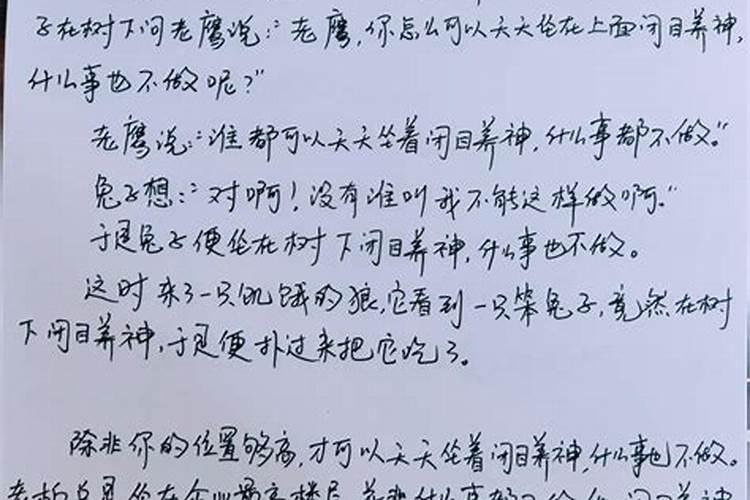 子在树下问老鹰说：“老鹰，你怎么可以天天坐在上面闭目养神，
什么事也不做呢？”
老鹰说：“谁都可以天天坐着闭目养神，什么事都不做。”
兔子想：“对啊！没有谁叫我不能这样做啊。”
于是兔子便坐在树下闭目养神，什么事也不做。
这时来了一只饥饿的狼，它看到一只笨兔子，竟然在树
下闭目养神，于是便扑过来把它吃了。
除非你的位置够高，才可以天天坐着闭目养神，什么事也不做。
老板总是坐在企业最高楼层，并非什么事都不做